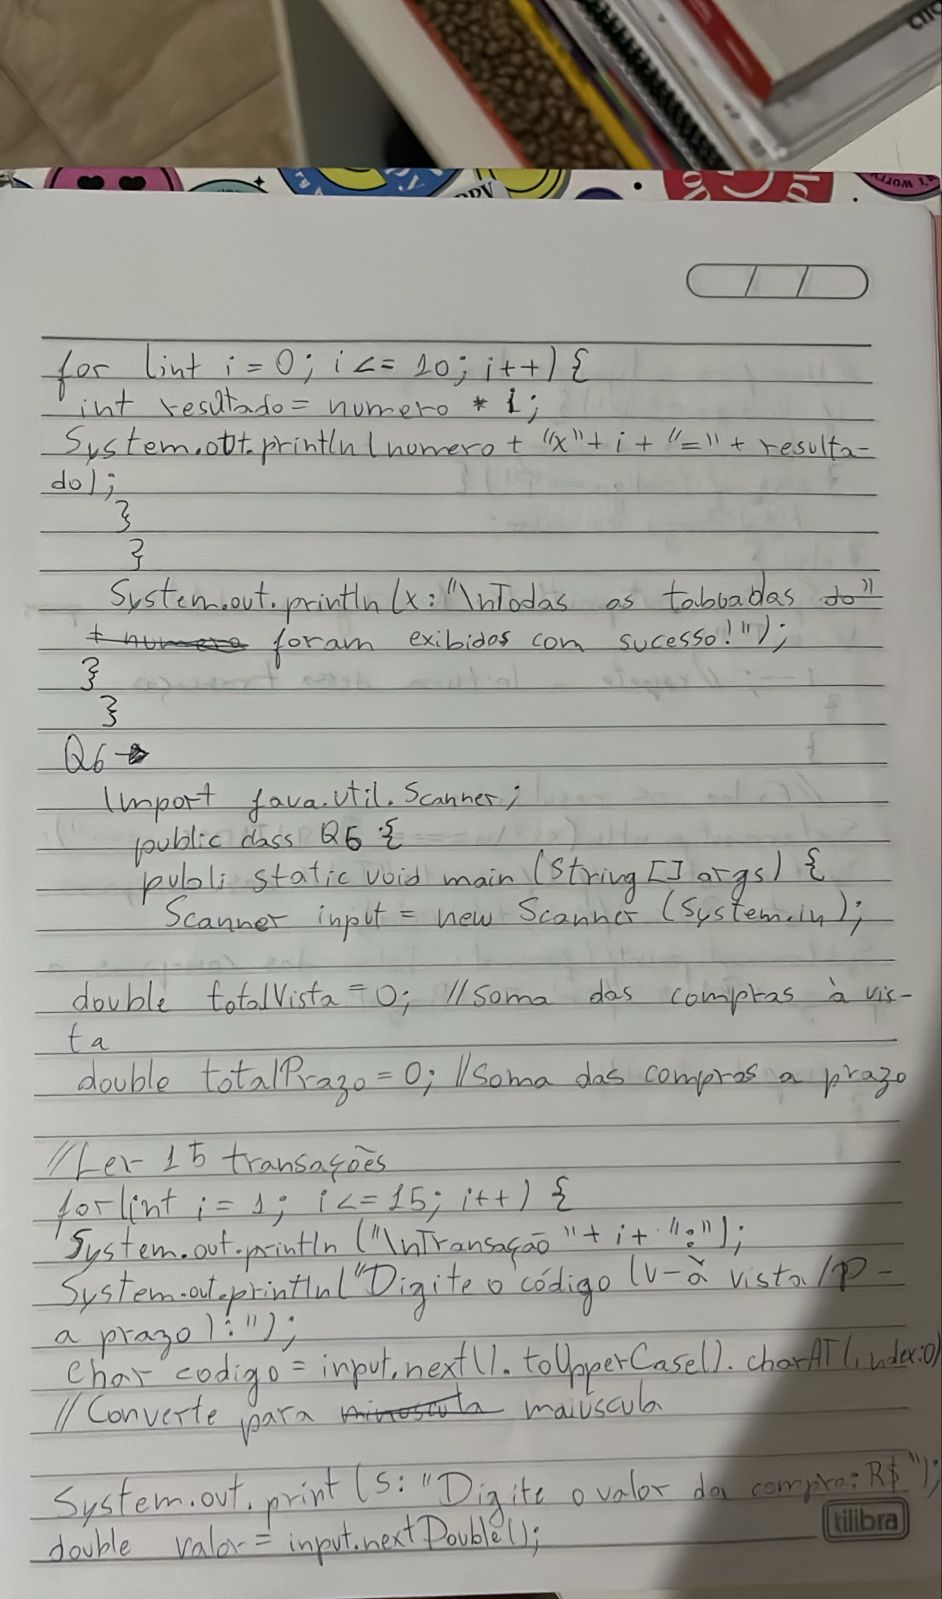 for (int i = 0; i <= 10; i++) {
int resultado = numero * i;
System.out.println(numero + "x" + i + "=" + resulta-
do);
}
}
System.out.println(x: "\nTodas as tabuadas do"
+ numero foram exibidos com sucesso!");
}
}
Q6 →
Import java.util.Scanner;
public class Q6 {
publi static void main (String [] args) {
Scanner input = new Scanner (System.in);
double totalVista = 0; //Soma das compras à vis-
ta
double totalPrazo = 0; //Soma das compras a prazo
//Ler 15 transações
for (int i = 1; i <= 15; i++) {
System.out.println ("\nTransação " + i + ":");
System.out.println("Digite o código (V-à vista/P-
a prazo):");
Char codigo = input.next().toUpperCase().charAT(index:0)
//Converte para minuscula maiúscula
System.out.print (s: "Digite o valor da compra: R$ ");
double valor = input.nextDouble();
tilibra